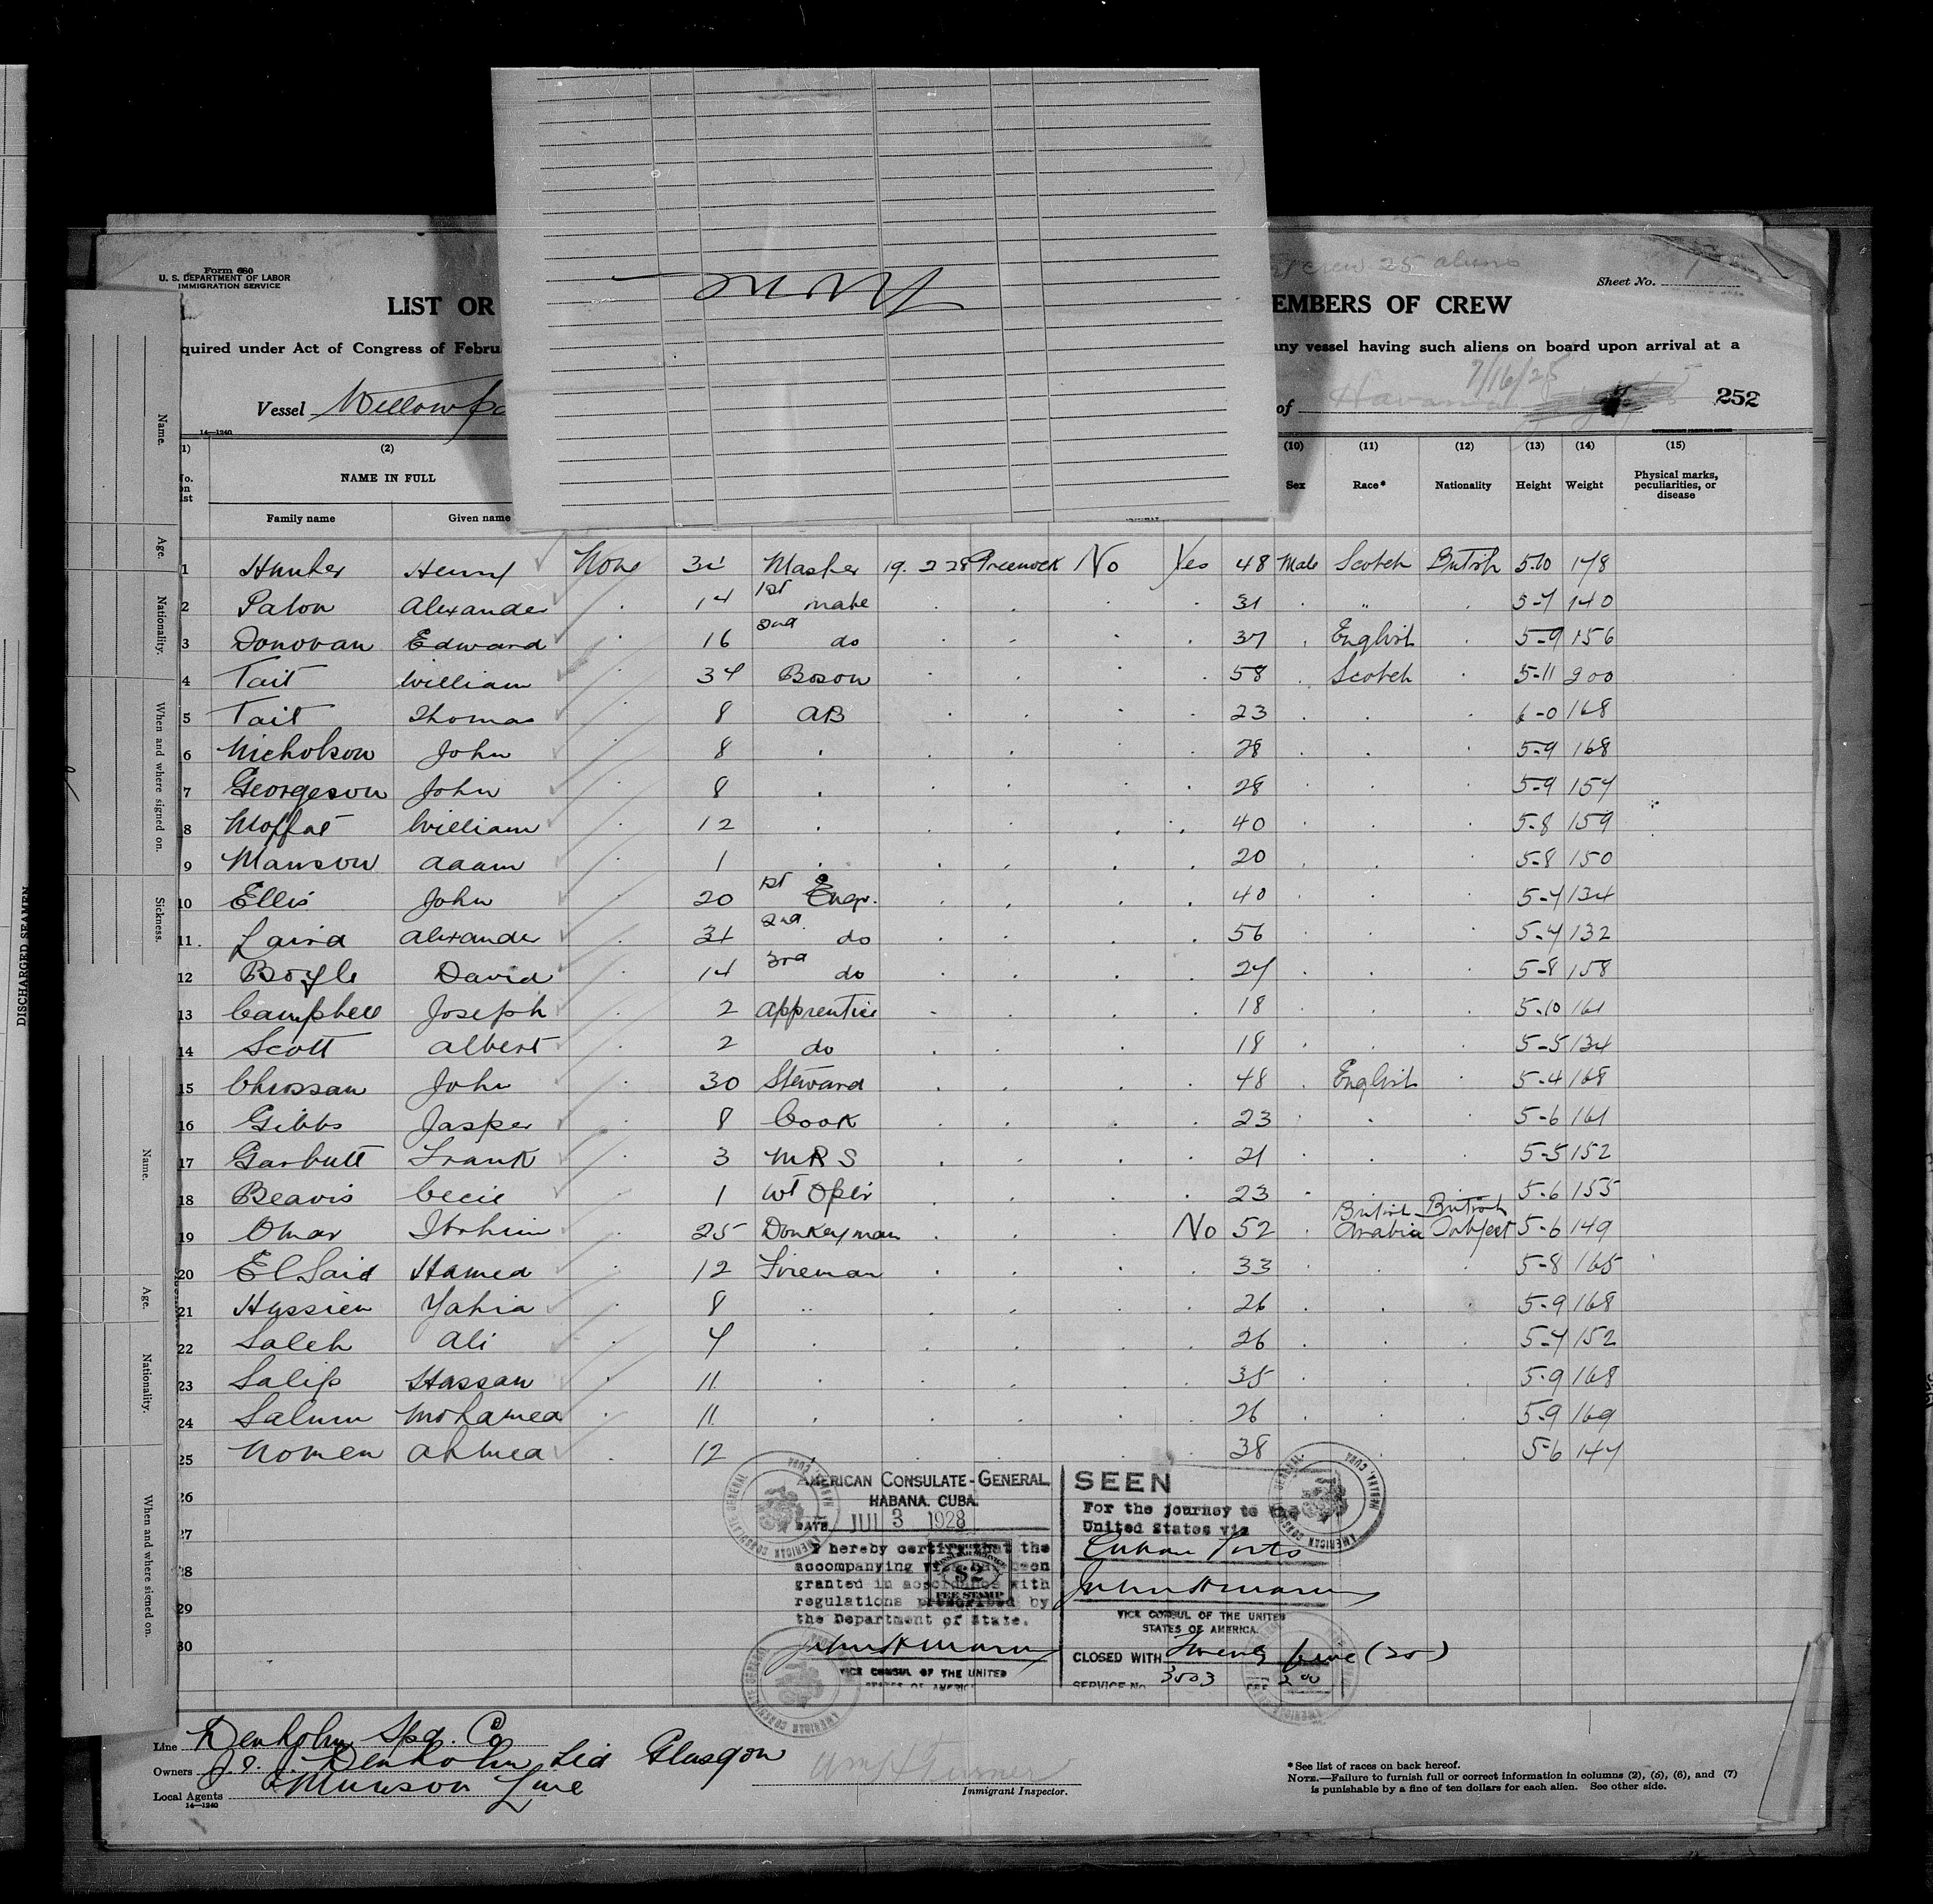 None
Form 680
U. S. DEPARTMENT OF LABOR
IMMIGRATION SERVICE
crew 25 aliens
Sheet No.
LIST OR
EMBERS OF CREW
quired under Act of Congress of Febru
any vessel having such aliens on board upon arrival at a
7/16/28
Vessel
of Havana
252
14—1240
(2) (10) (11) (12) (13) (14) (15)
NAME IN FULL Sex Race* Nationality Height Weight Physical marks, peculiarities, or disease
Family name Given name
1 Hunter Henry None 31 Master 19. 2 28 Greenock No Yes 48 Male Scotch British 5-10 178
2 Paton Alexander . 14 1st mate . . . . 31 . " . 5-7 140
3 Donovan Edward . 16 2nd do . . . . 37 . English . 5-9 156
4 Tait William . 34 Boson . . . . 58 . Scotch . 5-11 200
5 Tait Thomas . 8 AB . . . . 23 . . . 6-0 168
6 Nicholson John . 8 . . . . . 28 . . . 5-9 168
7 Georgeson John . 8 . . . . . 28 . . . 5-9 157
8 Moffat William . 12 . . . . . 40 . . . 5-8 159
9 Manson Adam . 1 . . . . . 20 . . . 5-8 150
10 Ellis John . 20 1st Engr. . . . . 40 . . . 5-4 134
11 Laird Alexander . 31 2nd do . . . . 56 . . . 5-4 132
12 Boyle David . 14 3rd do . . . . 27 . . . 5-8 158
13 Campbell Joseph . 2 Apprentice . . . . 18 . . . 5-10 161
14 Scott Albert . 2 do . . . . 18 . . . 5-5 134
15 John . 30 Steward . . . . 48 . English . 5-4 168
16 Gibbs Jasper . 8 Cook . . . . 23 . . . 5-6 161
17 Garbutt Frank . 3 MRS . . . . 21 . . . 5-5 152
18 Beavis Cecil . 1 Wt Oper . . . . 23 . . . 5-6 155
19 Omar Ibrahim . 25 Donkeyman . . . No 52 . British Arabia British Subject 5-6 149
20 El Said Hamed . 12 Fireman . . . . 33 . . . 5-8 165
21 Hussien Yahia . 8 " . . . . 26 . . . 5-9 168
22 Saleh Ali . 4 . . . . . 26 . . . 5-7 152
23 Salip Hassan . 11 . . . . . 35 . . . 5-9 168
24 Salum Mohamed . 11 . . . . . 26 . . . 5-9 169
25 Nomen Ahmed . 12 . . . . . 38 . . . 5-6 147
26
27
28
29
30
AMERICAN CONSULATE-GENERAL
HABANA. CUBA.
DATE JUL 3 1928
I hereby certify that the
accompanying visa has been
granted in accordance with
regulations prescribed by
the Department of State.
VICE CONSUL OF THE UNITED
STATES OF AMERICA
$2
FEE STAMP
SEEN
For the journey to the
United States via
Cuban Ports
VICE CONSUL OF THE UNITED
STATES OF AMERICA.
CLOSED WITH Twenty five (25)
SERVICE No. 3503 FEE 2.00
AMERICAN CONSULATE GENERAL HABANA, CUBA
Line Denholm Spg. Co
Owners J. & J. Denholm Ltd Glasgow
Local Agents Munson Line
14—1240
Immigrant Inspector.
* See list of races on back hereof.
NOTE.—Failure to furnish full or correct information in columns (2), (5), (6), and (7)
is punishable by a fine of ten dollars for each alien. See other side.
Name.
Age.
Nationality.
When and where signed on.
Sickness.
Name.
Age.
Nationality.
When and where signed on.
DISCHARGED SEAMEN